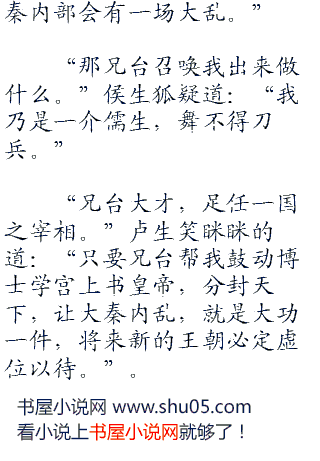 秦内部会有一场大乱。”
“那兄台召唤我出来做
什么。”侯生狐疑道：“我
乃是一介儒生，舞不得刀
兵。”
“兄台大才，足任一国
之宰相。”卢生笑眯眯的
道：“只要兄台帮我鼓动博
士学宫上书皇帝，分封天
下，让大秦内乱，就是大功
一件，将来新的王朝必定虚
位以待。”。
书屋小说网 www.shu05.com
看小说上书屋小说网就够了！